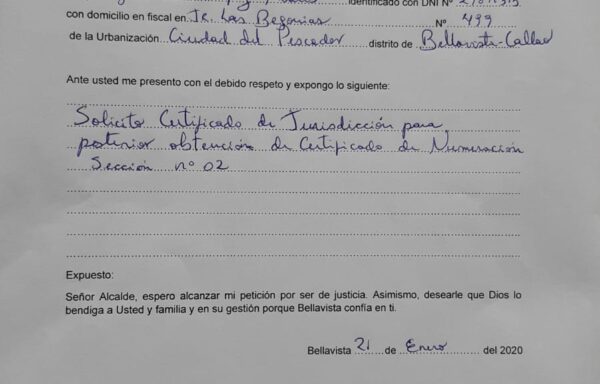 identificado con DNI N°
con domicilio en fiscal en Jr. Las Begonias N° 499
de la Urbanización Ciudad del Pescador distrito de Bellavista-Callao
Ante usted me presento con el debido respeto y expongo lo siguiente:
Solicito Certificado de Jurisdicción para
posterior obtención de Certificado de Numeración
Sección n° 02
Expuesto:
Señor Alcalde, espero alcanzar mi petición por ser de justicia. Asimismo, desearle que Dios lo
bendiga a Usted y familia y en su gestión porque Bellavista confía en ti.
Bellavista 21 de Enero del 2020